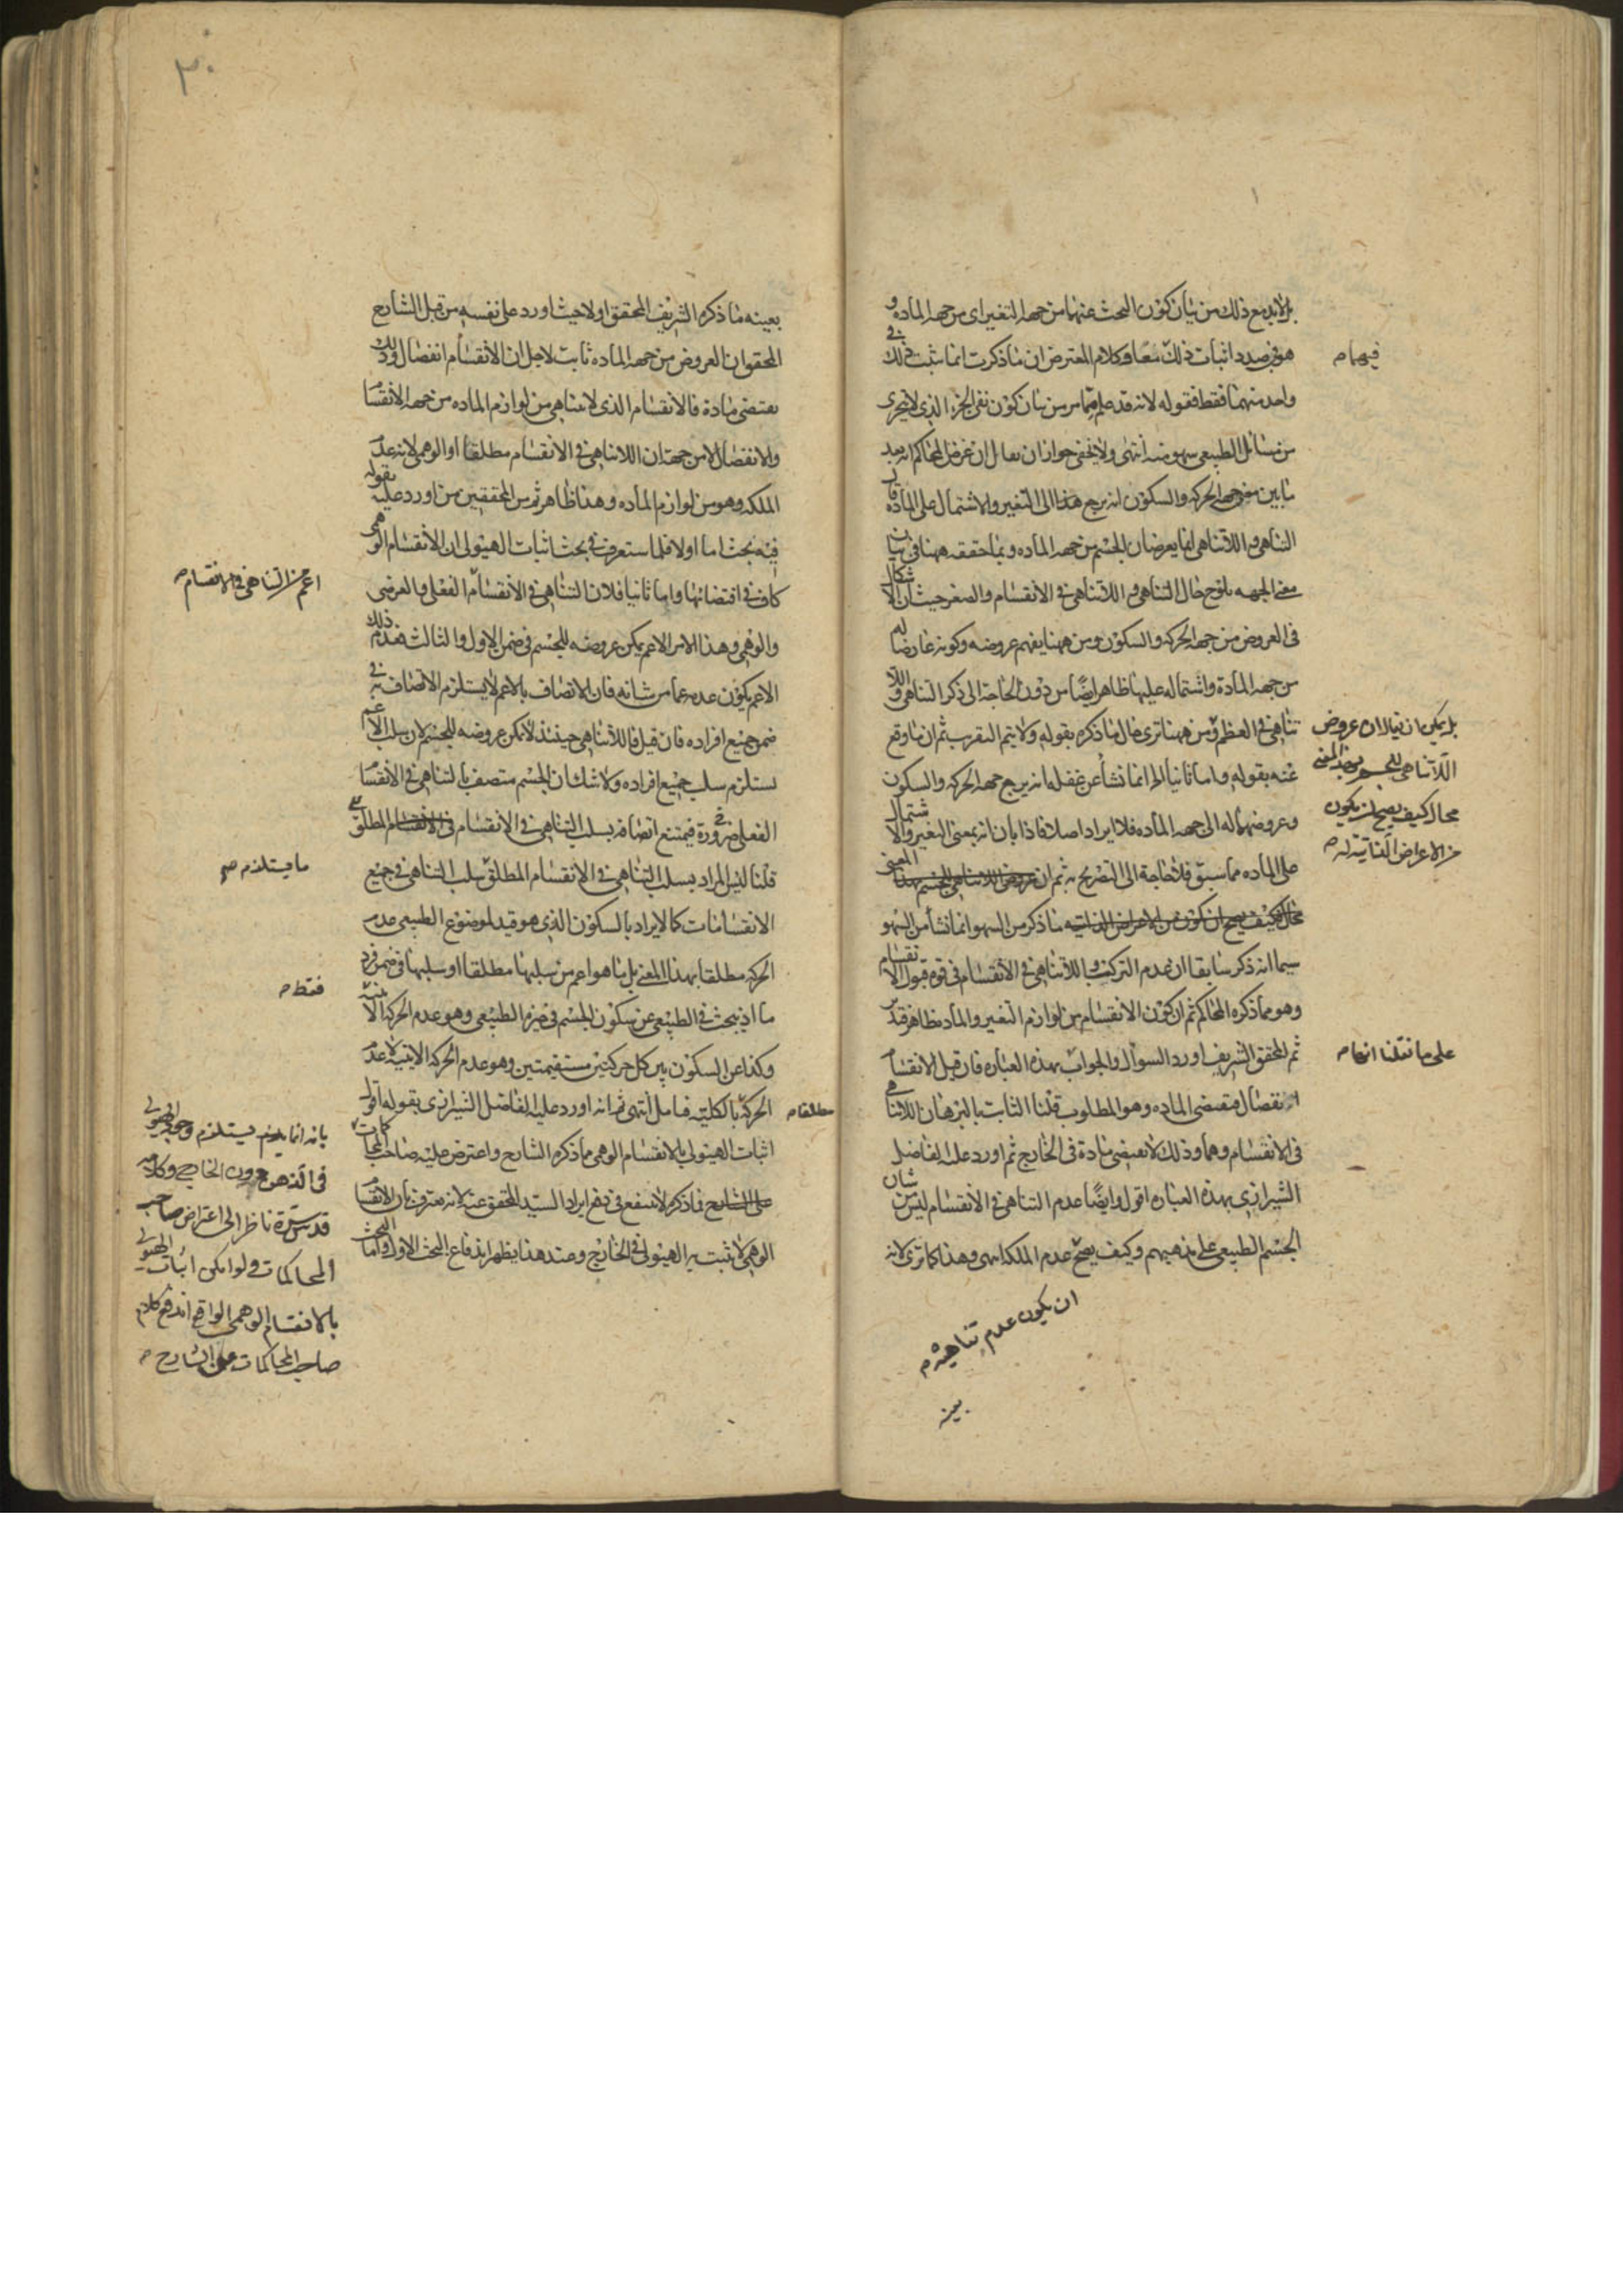 بل لابد مع ذلك من بيان كون البحث عنهما من جهة التغير اى من جهة المادة و
هو فى صدد اثبات ذلك معا وكلام المعترض ان ما ذكرت انما يثبت ذلك فى
فيهما
واحد منهما فقط فقوله لانه قد علم مما مر من بيان كون نفى الجزء الذى لا يتجزى
من مسائل الطبيعى سهو منه انتهى ولا يخفى جواز ان يقال ان غرض المحاكم انه بعد
ما بين معنى جهة الحركة والسكون انه يرجع هذا الى التغير والاشتمال على المادة قال
التناهى واللاتناهى انما يعرضان للجسم من جهة المادة وبما حققه ههنا فى بيان
معنى الجهة يلوح حال التناهى واللاتناهى فى الانقسام والصغر حيث ان الاشكال
فى العروض من جهة الحركة والسكون ومن ههنا يفهم عروضه وكونه عارضا له
من جهة المادة واشتماله عليها ظاهر ايضا من دون الحاجة الى ذكر التناهى واللا
تناهى فى العظم ومن ههنا ترى حال ما ذكره بقوله ولا يتم التقريب ثم ان ما وقع
بل يمكن ان يقال ان عروض
اللاتناهى للجسم بهذا المعنى
محال كيف يصح ان يكون
من الاعراض الذاتية له
عنه بقوله واما ثانيا الخ انما نشأ عن غفلة انه يرجع جهة الحركة والسكون
وعروضهما له الى جهة المادة فلا ايراد اصلا فاذا بان انه بمعنى التغير والاشتمال
على المادة مما سبق فلا حاجة الى التصريح به ثم ان عروض اللاتناهى للجسم بهذا المعنى
محال كيف يصح ان يكون من الاعراض الذاتية ما ذكر من السهو انما نشأ من السهو
سيما انه ذكر سابقا ان عدم التركيب واللاتناهى فى الانقسام فى قوة قبول الانقسام
وهو مما ذكره المحاكم ثم ان كون الانقسام من لوازم التغير والمادة ظاهر قد
على ما نقلنا
ثم المحقق الشريف اورد السؤال والجواب بهذه العبارة فان قيل الانقسام
انفصال فيقتضى المادة وهو المطلوب قلنا الثابت بالبرهان اللاتناهى
فى الانقسام وهما وذلك لا يقتضى مادة فى الخارج ثم اورد عليه الفاضل
الشيرازى بهذه العبارة اقول وايضا عدم التناهى فى الانقسام ليس من شان
الجسم الطبيعى على مذهبهم وكيف يصح عدم الملكة انتهى وهذا كما ترى لانه
ان يكون عدم تناهيه
بعينه
٣٠
بعينه ما ذكره الشريف المحقق اولا حيث اورد على نفسه من قبل الشارح
المحقق ان العروض من جهة المادة ثابت لاجل ان الانقسام انفصال وذلك
يقتضى مادة فالانقسام الذى لا يتناهى من لوازم المادة من جهة الانقسام
والانفصال لا من جهة ان اللاتناهى فى الانقسام مطلقا او الوهمى لانه عدم
الملكة وهو من لوازم المادة وهذا ظاهر ثم من المحققين من اورد عليه بقوله
فيه بحث اما اولا فلما ستعرف فى بحث اثبات الهيولى ان الانقسام الوهمى
كاف فى اقتضائها واما ثانيا فلان التناهى فى الانقسام الفعلى والفرضى
اعم من التناهى فى الانقسام
والوهمى وهذا الامر الاعم يمكن عروضه للجسم فى ضمن الاول والثالث فعدم ذلك
الاعم يكون عدم عما من شانه فان الاتصاف بالاعم لا يستلزم الاتصاف به فى
ضمن جميع افراده فان قيل فاللاتناهى حينئذ لا يمكن عروضه للجسم لان سلب الاعم
يستلزم سلب جميع افراده ولا شك ان الجسم متصف بالتناهى فى الانقسام
الفعلى ضرورة فيمتنع اتصافه بسلب التناهى فى الانقسام فى الانقسام المطلق
قلنا ليس المراد بسلب التناهى فى الانقسام المطلق سلب التناهى فى جميع
ما يستلزم
الانقسامات كما لا يراد بالسكون الذى هو قيد لموضوع الطبيعى عدم
الحركة مطلقا بهذا المعنى بل ما هو اعم من سلبها مطلقا او سلبها فى ضمن فرد
فقط
ما اذ يبحث فى الطبيعى عن سكون الجسم فى حيزه الطبيعى وهو عدم الحركة الاينية
وكذا عن السكون بين كل حركتين مستقيمتين وهو عدم الحركة الاينية لا عدم
الحركة بالكلية فتأمل انتهى ثم انه اورد عليه الفاضل الشيرازى بقوله اقول
مطلقا
اثبات الهيولى بالانقسام الوهمى ما ذكره الشارح واعترض عليه صاحب المحاكمات
بانه انما يستلزم وجود الهيولى
فى الذهن دون الخارج وكلامه
قدس سره ناظر الى اعتراض صاحب
المحاكمات ولو امكن اثبات الهيولى
بالانقسام الوهمى الواقع اندفع كلام
صاحب المحاكمات على الشارح
على الشارح فما ذكر لا ينفع فى دفع ايراد السيد المحقق عنه لانه معترف بان الانقسام
الوهمى لا يثبت به الهيولى فى الخارج وعند هذا يظهر اندفاع البحث الاول واما البحث